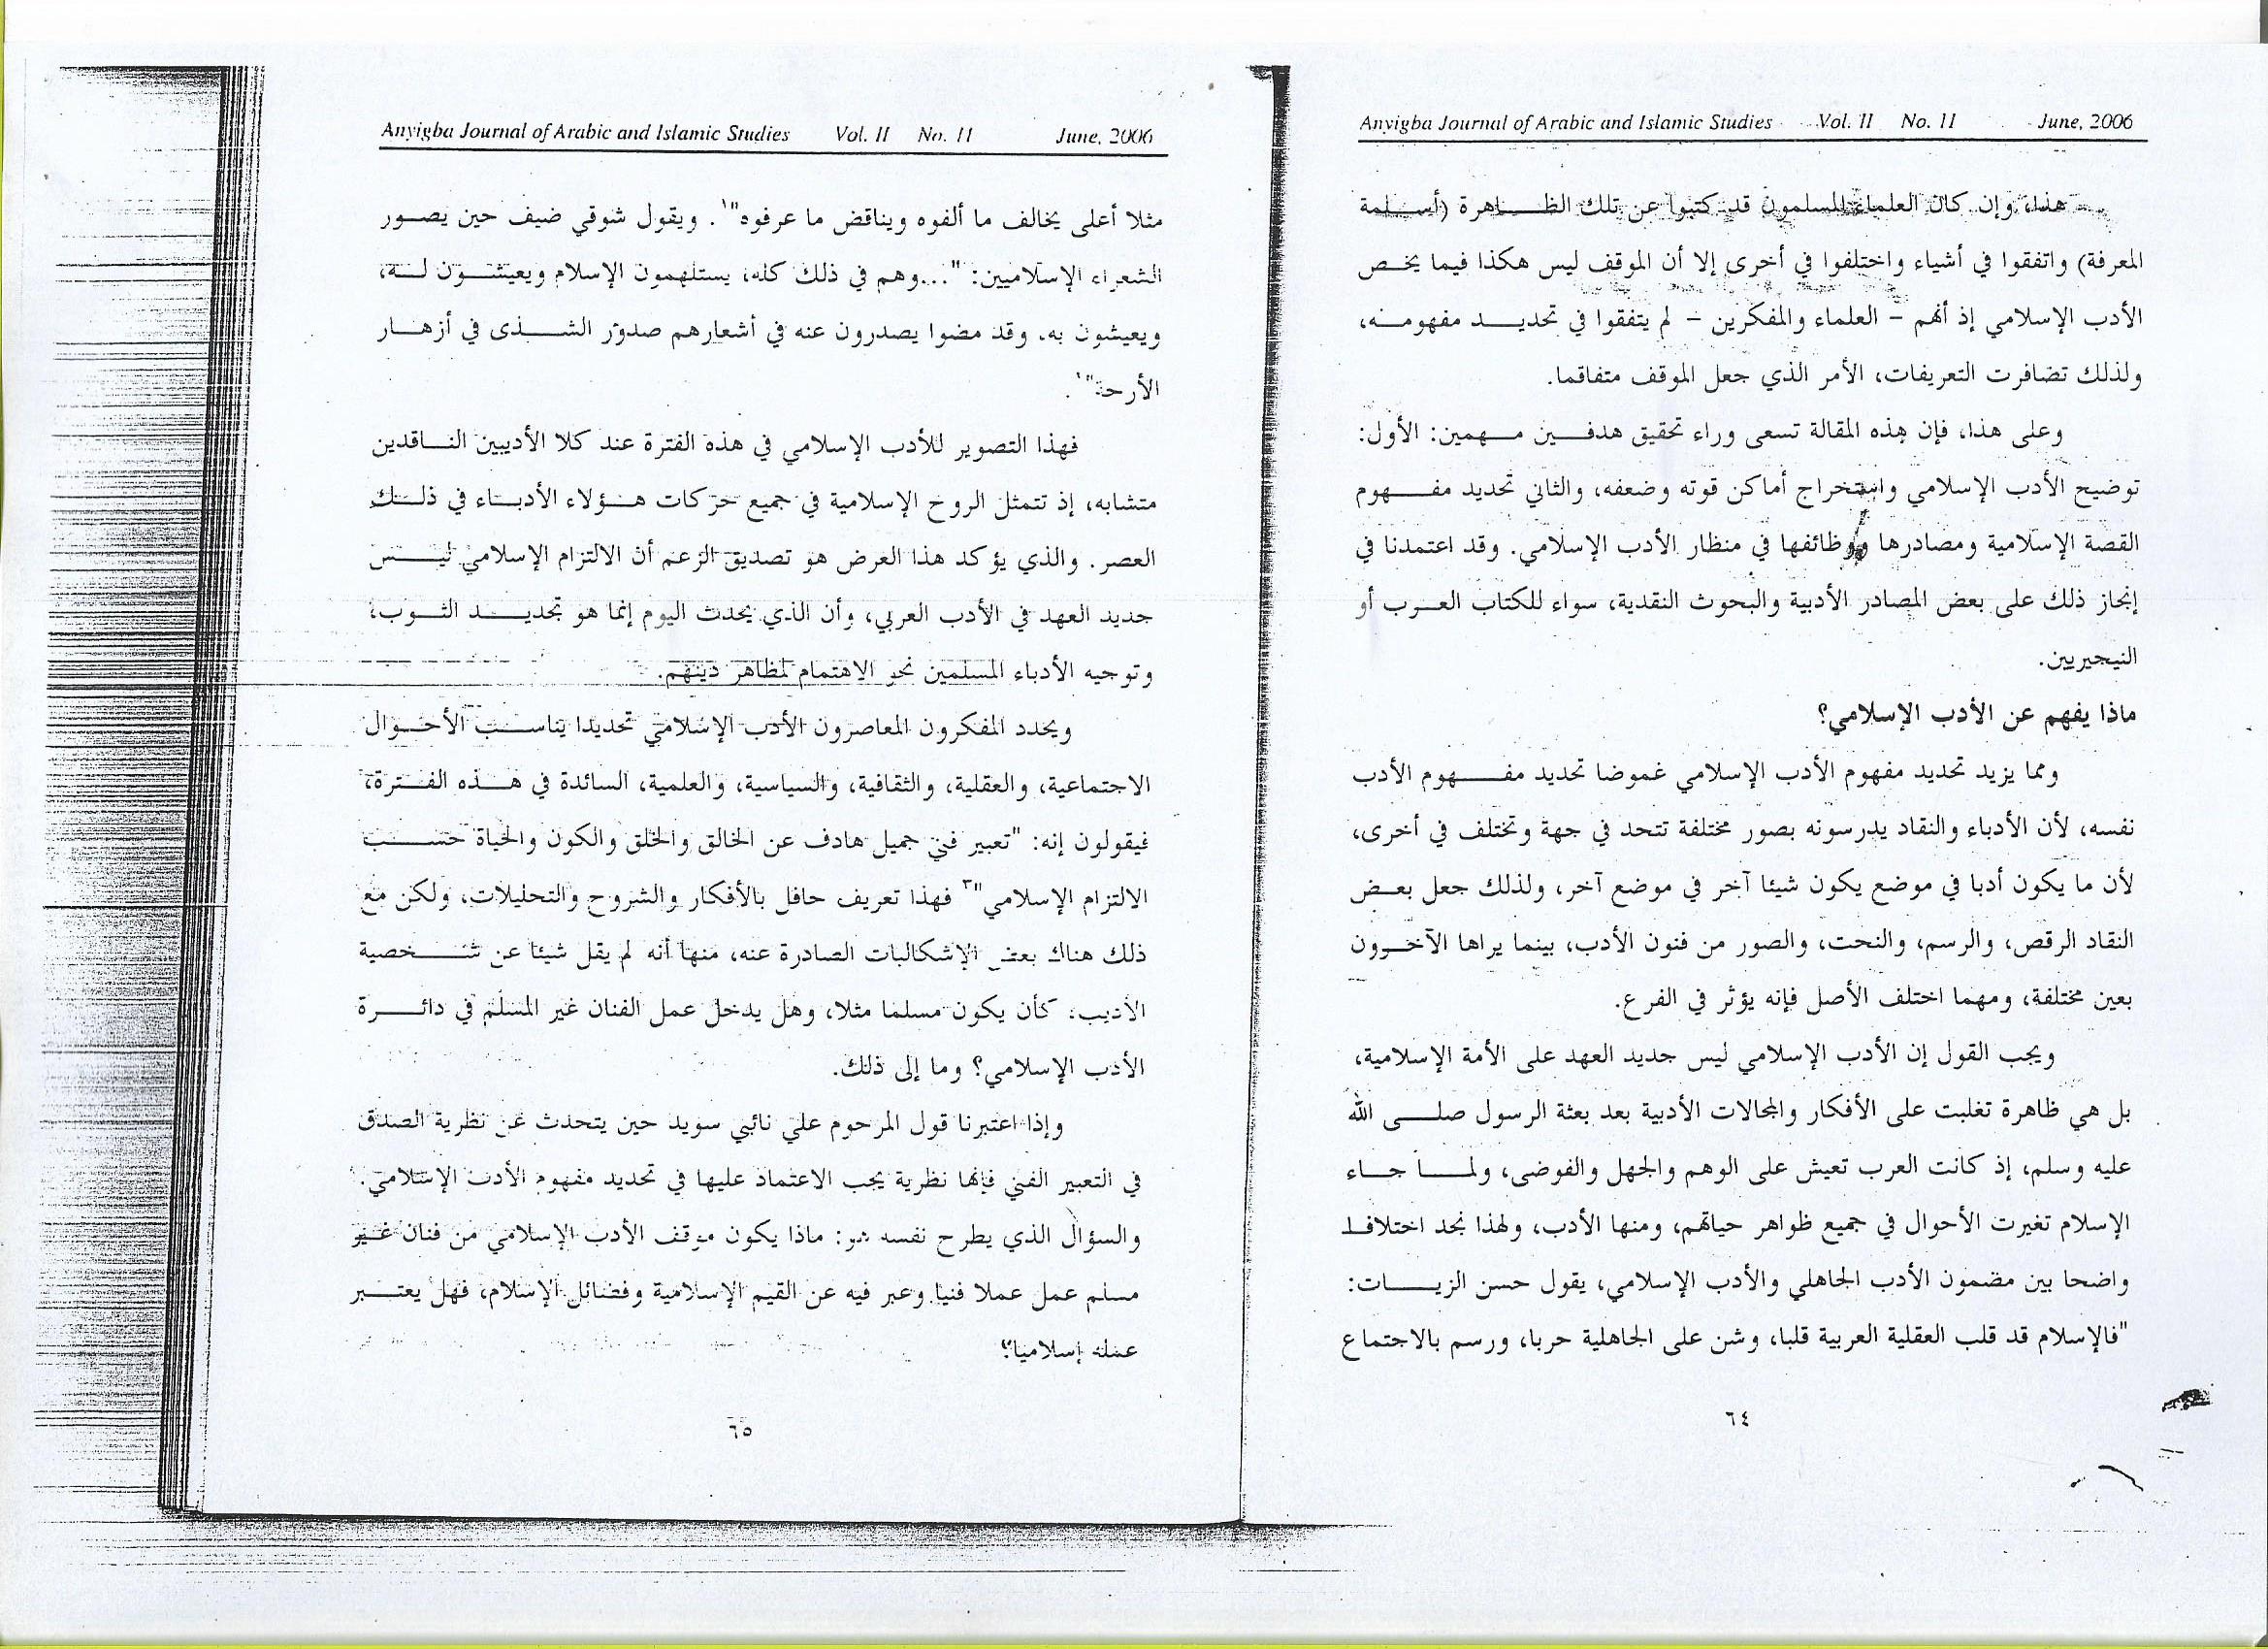 Anyigba Journal of Arabic and Islamic Studies Vol. II No. II June, 2006
هذا، وإن كان العلماء المسلمون قد كتبوا عن تلك الظاهرة (أسلمة
المعرفة) واتفقوا في أشياء واختلفوا في أخرى إلا أن الموقف ليس هكذا فيما يخص
الأدب الإسلامي إذ أنهم – العلماء والمفكرين – لم يتفقوا في تحديد مفهومه،
ولذلك تضافرت التعريفات، الأمر الذي جعل الموقف متفاقما.
وعلى هذا، فإن هذه المقالة تسعى وراء تحقيق هدفين مهمين: الأول:
توضيح الأدب الإسلامي واستخراج أماكن قوته وضعفه، والثاني تحديد مفهوم
القصة الإسلامية ومصادرها ووظائفها في منظار الأدب الإسلامي. وقد اعتمدنا في
إنجاز ذلك على بعض المصادر الأدبية والبحوث النقدية، سواء للكتاب العرب أو
النيجيريين.
ماذا يفهم عن الأدب الإسلامي؟
ومما يزيد تحديد مفهوم الأدب الإسلامي غموضا تحديد مفهوم الأدب
نفسه، لأن الأدباء والنقاد يدرسونه بصور مختلفة تتحد في جهة وتختلف في أخرى،
لأن ما يكون أدبا في موضع يكون شيئا آخر في موضع آخر، ولذلك جعل بعض
النقاد الرقص، والرسم، والنحت، والصور من فنون الأدب، بينما يراها الآخرون
بعين مختلفة، ومهما اختلف الأصل فإنه يؤثر في الفرع.
ويجب القول إن الأدب الإسلامي ليس جديد العهد على الأمة الإسلامية،
بل هي ظاهرة تغلبت على الأفكار والمجالات الأدبية بعد بعثة الرسول صلى الله
عليه وسلم، إذ كانت العرب تعيش على الوهم والجهل والفوضى، ولما جاء
الإسلام تغيرت الأحوال في جميع ظواهر حياتهم، ومنها الأدب، ولهذا نجد اختلافا
واضحا بين مضمون الأدب الجاهلي والأدب الإسلامي، يقول حسن الزيات:
"فالإسلام قد قلب العقلية العربية قلبا، وشن على الجاهلية حربا، ورسم بالاجتماع
٦٤
Anyigba Journal of Arabic and Islamic Studies Vol. II No. II June, 2006
مثلا أعلى يخالف ما ألفوه ويناقض ما عرفوه"١. ويقول شوقي ضيف حين يصور
الشعراء الإسلاميين: "...وهم في ذلك كله، يستلهمون الإسلام ويعيشون له،
ويعيشون به. وقد مضوا يصدرون عنه في أشعارهم صدور الشذى في أزهار
الأرحة".
فهذا التصوير للأدب الإسلامي في هذه الفترة عند كلا الأديبين الناقدين
متشابه، إذ تتمثل الروح الإسلامية في جميع حركات هؤلاء الأدباء في ذلك
العصر. والذي يؤكد هذا العرض هو تصديق الزعم أن الالتزام الإسلامي ليس
جديد العهد في الأدب العربي، وأن الذي يحدث اليوم إنما هو تجديد الثوب،
وتوجيه الأدباء المسلمين نحو الاهتمام لمظاهر دينهم.
ويحدد المفكرون المعاصرون الأدب الإسلامي تحديدا يناسب الأحوال
الاجتماعية، والعقلية، والثقافية، والسياسية، والعلمية، السائدة في هذه الفترة،
فيقولون إنه: "تعبير فني جميل هادف عن الخالق والخلق والكون والحياة حسب
الالتزام الإسلامي"٣ فهذا تعريف حافل بالأفكار والشروح والتحليلات، ولكن مع
ذلك هناك بعض الإشكالبات الصادرة عنه، منها أنه لم يقل شيئا عن شخصية
الأديب: كأن يكون مسلما مثلا، وهل يدخل عمل الفنان غير المسلم في دائرة
الأدب الإسلامي؟ وما إلى ذلك.
وإذا اعتبرنا قول المرحوم علي نائبي سويد حين يتحدث عن نظرية الصدق
في التعبير الفني فإنها نظرية يجب الاعتماد عليها في تحديد مفهوم الأدب الإسلامي.
والسؤال الذي يطرح نفسه هو: ماذا يكون موقف الأدب الإسلامي من فنان غير
مسلم عمل عملا فنيا وعبر فيه عن القيم الإسلامية وفضائل الإسلام، فهل يعتبر
عمله إسلاميا؟
٦٥